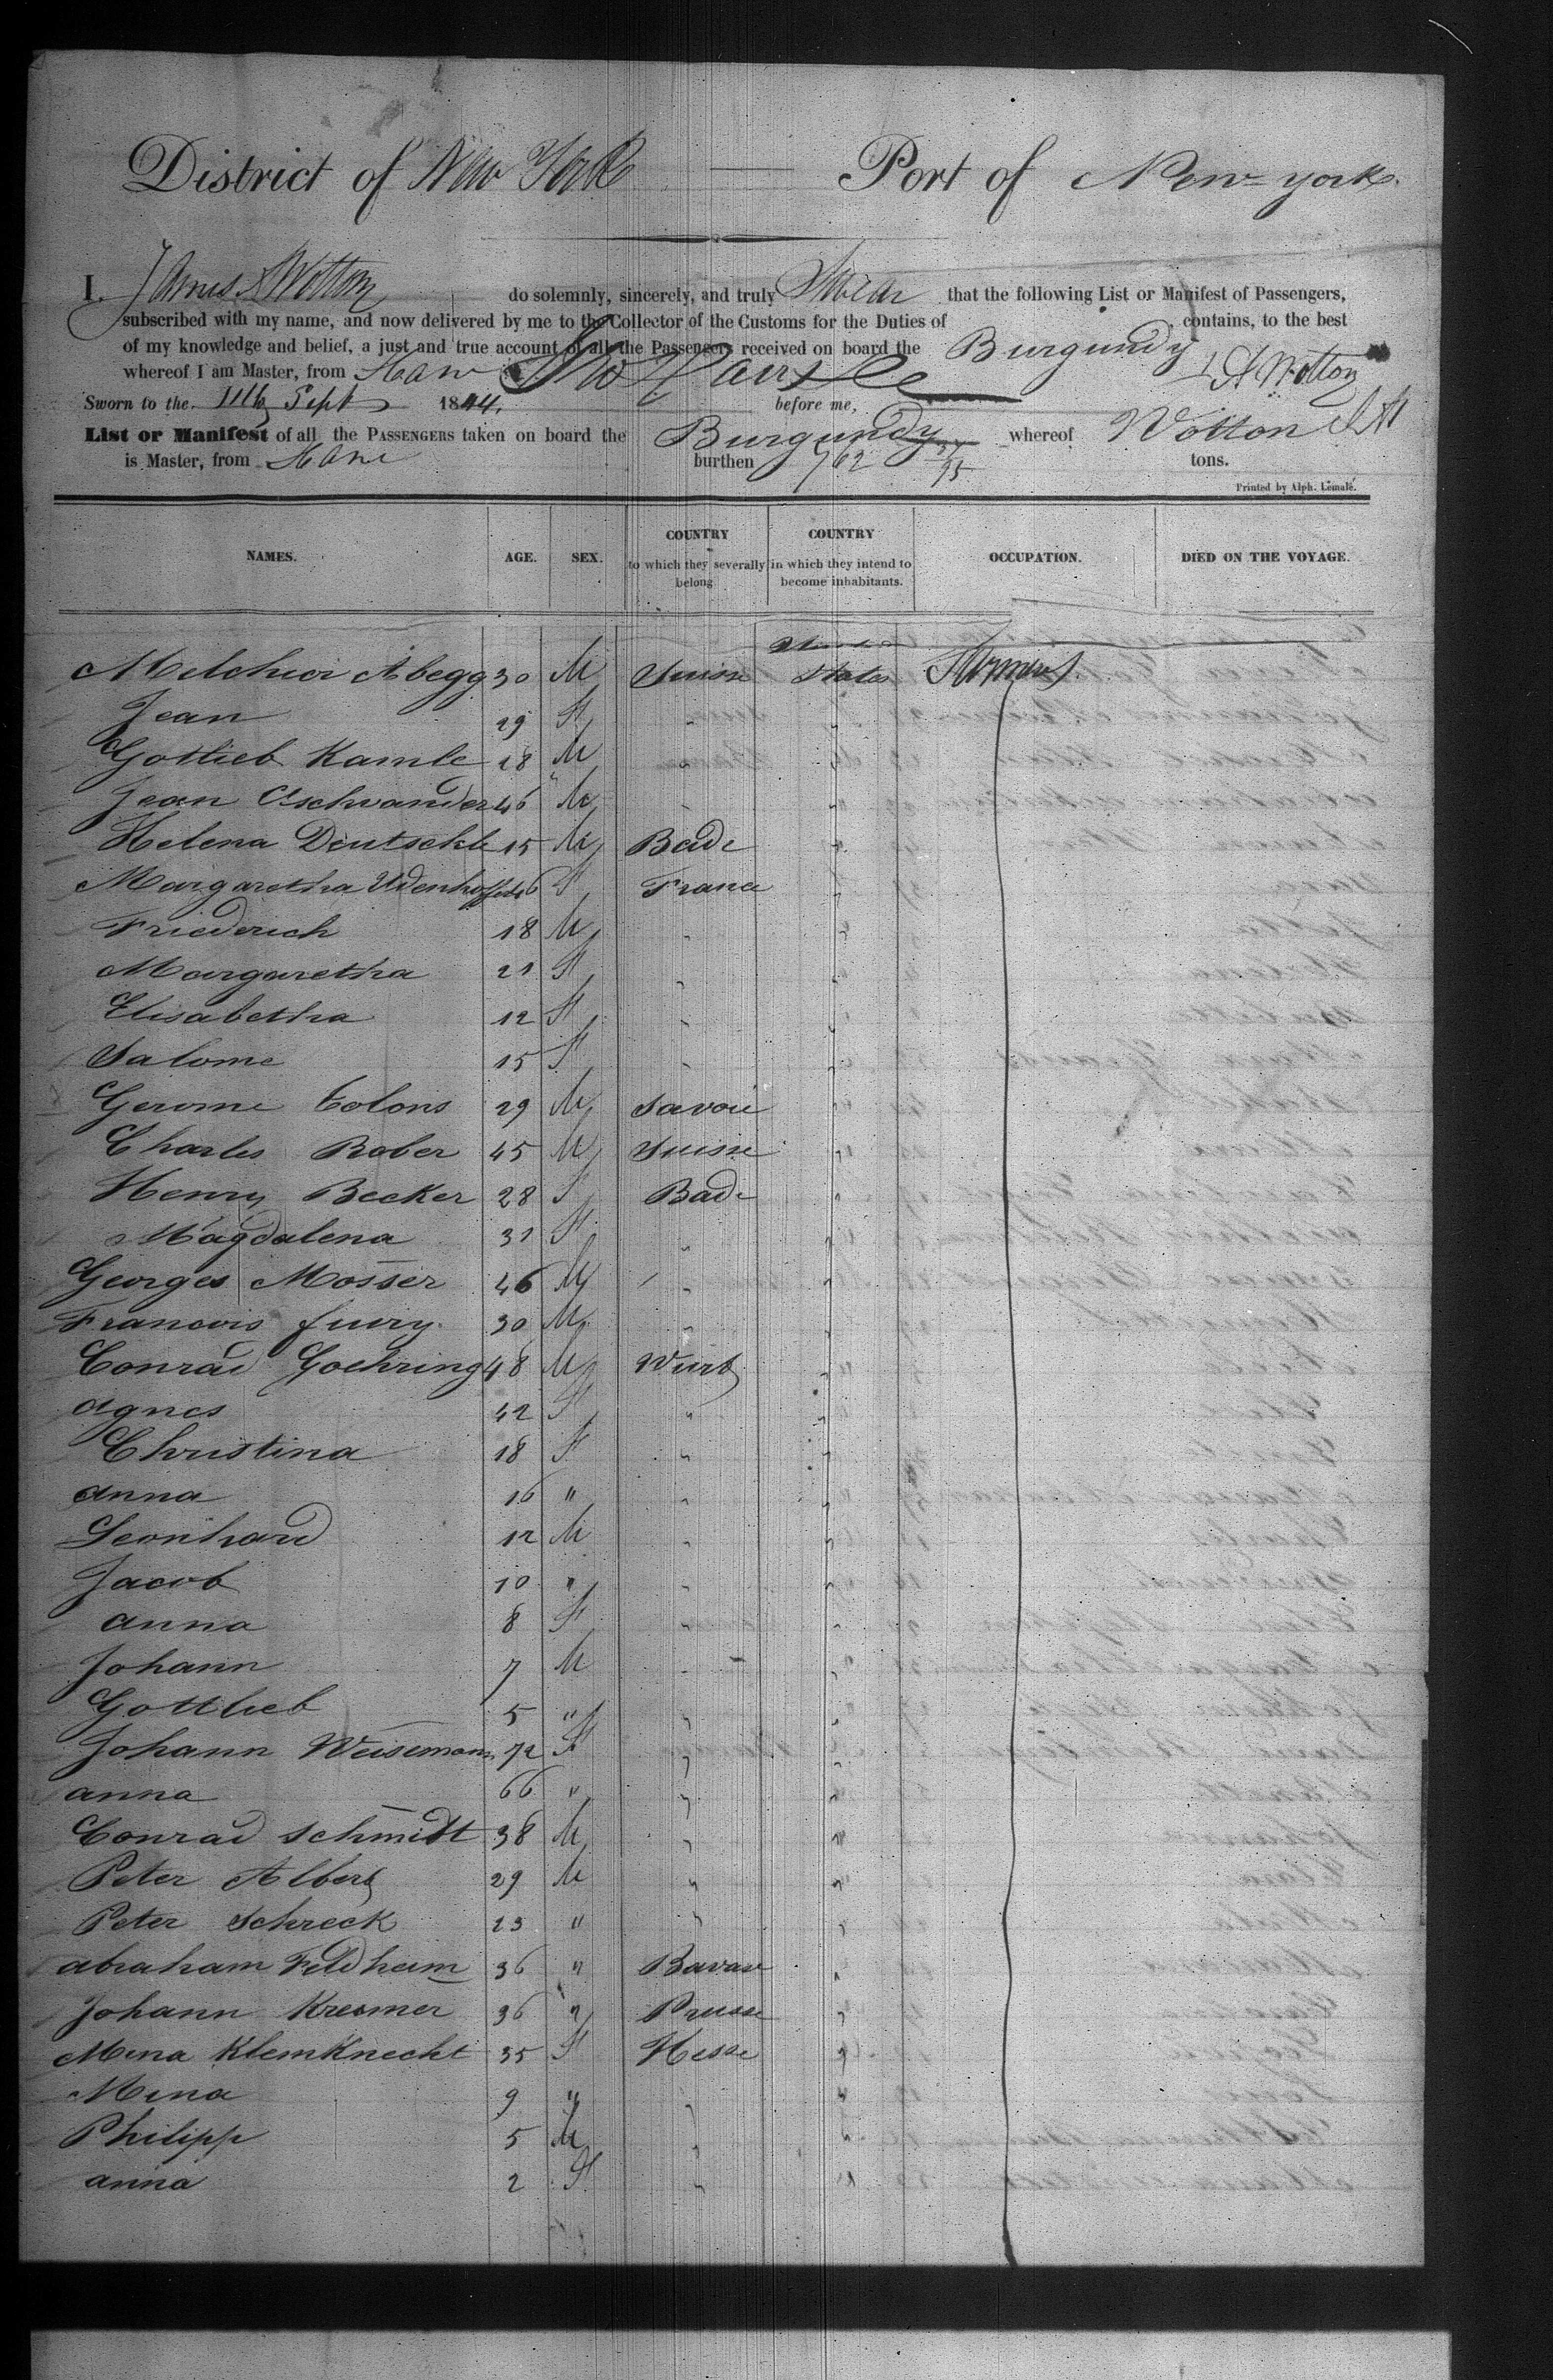 District of New York Port of New-york.
I. James A Wotton do solemnly, sincerely, and truly Swear that the following List or Manifest of Passengers,
subscribed with my name, and now delivered by me to the Collector of the Customs for the Duties of contains, to the best
of my knowledge and belief, a just and true account of all the Passengers received on board the Burgundy
whereof I am Master, from Havre J A Wotton
Sworn to the. 11th Sept 1844. before me,
List or Manifest of all the PASSENGERS taken on board the Burgundy whereof Wotton
is Master, from Havre burthen 762 /95 tons.
Printed by Alph. Lemale.
NAMES. AGE. SEX. COUNTRY to which they severally belong COUNTRY in which they intend to become inhabitants. OCCUPATION. DIED ON THE VOYAGE.
Melchior Abegg 30 M Suisse United States Farmers
Jean 29 F " "
Gottlieb Kamle 18 M " "
Jean Aschwander 46 M " "
Helena Deutschle 15 M Bade "
Margaretha 46 F France "
Friederich 18 M " "
Margaretha 21 F " "
Elisabetha 12 F " "
Salome 15 F " "
Gerome Colons 29 M Savoie "
Charles Rober 45 M Suisse "
Henry Becker 28 F Bade "
Magdalena 31 F " "
Georges Mosser 46 M " "
Francois 30 M " "
Conrad Goehring 48 M Wurtb "
Agnes 42 F " "
Christina 18 F " "
Anna 16 " " "
Leonhard 12 M " "
Jacob 10 " " "
Anna 8 F " "
Johann 7 M " "
Gottlieb 5 " " "
Johann Weisemann 72 F " "
anna 66 " " "
Conrad Schmidt 38 M " "
Peter Albert 29 M " "
Peter Schreck 23 " " "
abraham Feldheim 36 " Bavare "
Johann Kresmer 36 " Prusse "
Mina Klemknecht 35 F Hesse "
Mina 9 " " "
Philipp 5 M " "
anna 2 F " "